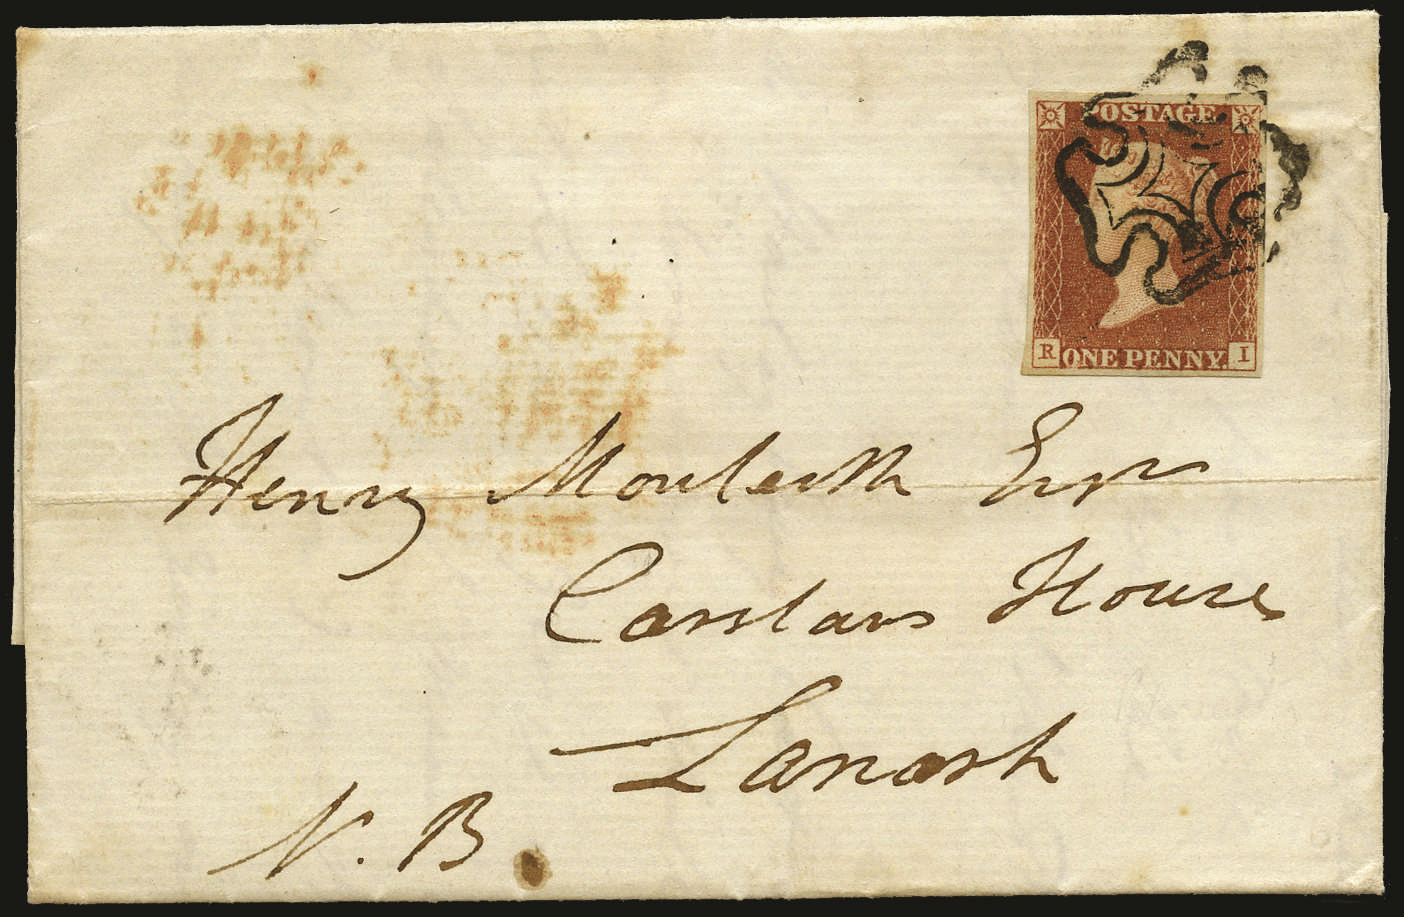 POSTAGE
R ONE PENNY. I
Henry Monteith Esqr
Carstairs House
Lanark
N. B.